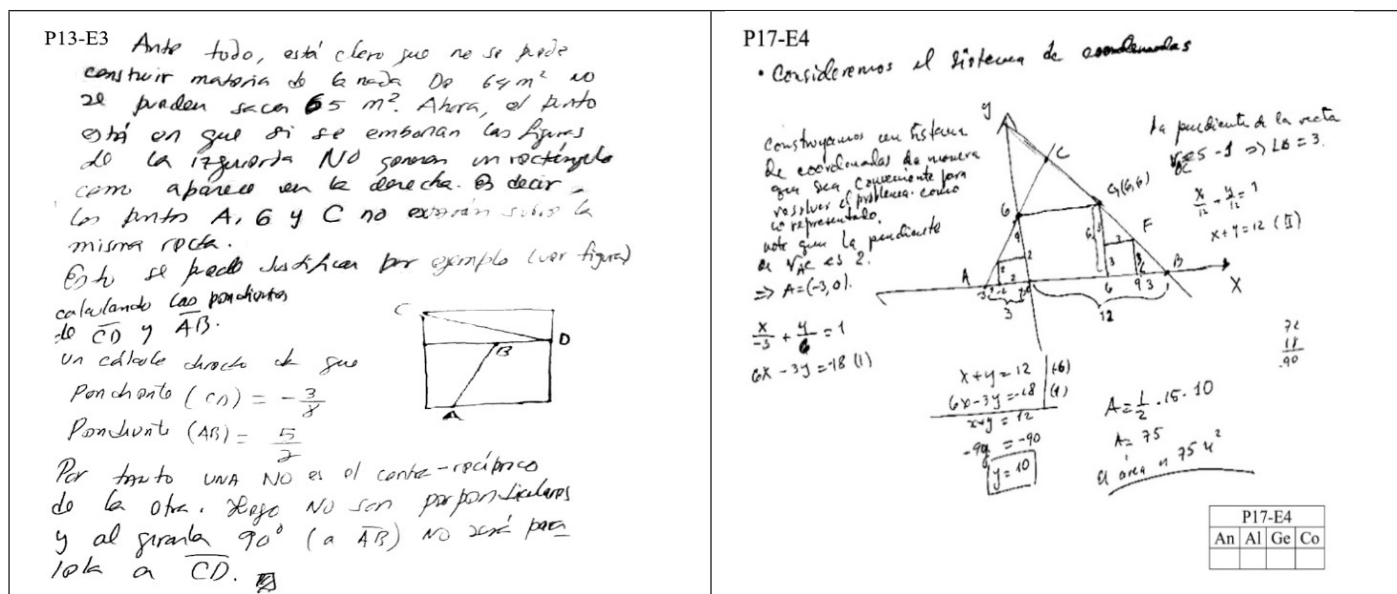 P13-E3 Ante todo, está claro que no se puede
construir materia de la nada De 64 m² no
se pueden sacar 65 m². Ahora, el punto
está en que si se embonan las figuras
de la izquierda NO generan un rectángulo
como aparece en la derecha. Es decir,
los puntos A, G y C no estarán sobre la
misma recta.
Esto se puede justificar por ejemplo (ver figura)
calculando las pendientes
de CD y AB.
Un cálculo directo da que
Pendiente (CD) = -3/8
Pendiente (AB) = 5/2
Por tanto UNA NO es el contra-recíproco
de la otra. Luego NO son perpendiculares
y al girarla 90° (a AB) NO será para
lela a CD.
C
D
B
A
P17-E4
• Consideremos el sistema de coordenadas
construyamos un sistema
de coordenadas de manera
que sea conveniente para
resolver el problema. como
representado.
note que la pendiente
de AC es 2.
⇒ A=(-3,0).
x/-3 + y/6 = 1
6x - 3y = -18 (1)
y
C
6
G(6,6)
F
A
B
X
3
6
9
3
12
la pendiente de la recta
es -1 ⇒ LB = 3.
x/12 + y/12 = 1
x+y=12 (II)
x+y=12 (-6)
6x-3y=-18 (1)
x+y=12
-9y = -90
y=10
A=1/2 · 15 · 10
A= 75
El área es 75 u²
72
18
90
P17-E4
An Al Ge Co